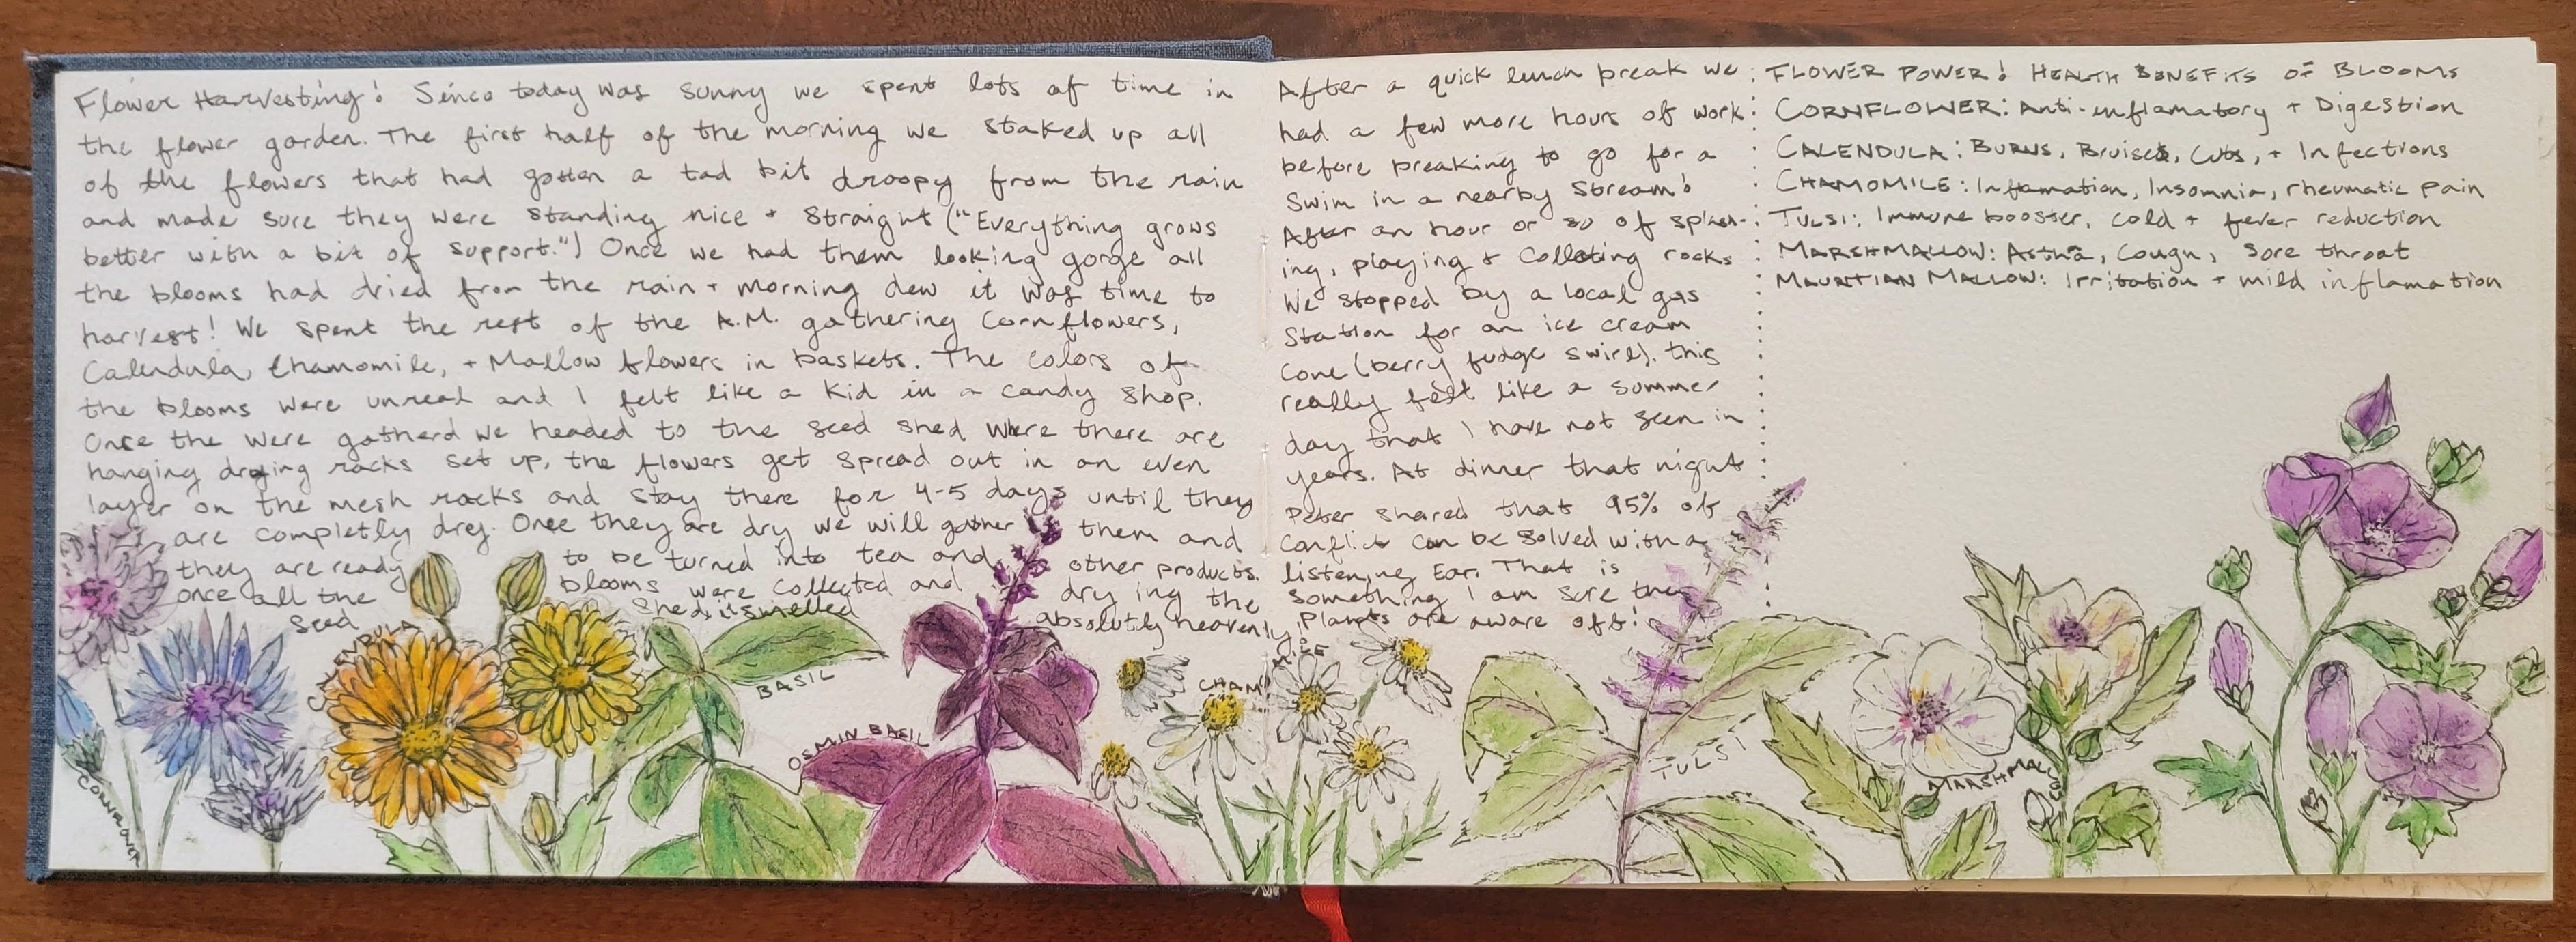 Flower Harvesting! Since today was sunny we spent lots of time in
the flower garden. The first half of the morning we staked up all
of the flowers that had gotten a tad bit droopy from the rain
and made sure they were standing nice + straight ("Everything grows
better with a bit of support.") Once we had them looking gorge all
the blooms had dried from the rain + morning dew it was time to
harvest! We spent the rest of the A.M. gathering Cornflowers,
Calendula, Chamomile, + Mallow flowers in baskets. The colors of
the blooms were unreal and I felt like a kid in a candy shop.
Once the were gatherd we headed to the seed shed where there are
hanging drying racks set up, the flowers get spread out in an even
layer on the mesh racks and stay there for 4-5 days until they
are completly dry. Once they are dry we will gather them and
they are ready to be turned into tea and other products.
once all the blooms were collected and drying the
seed shed it smelled absolutly heavenly!
After a quick lunch break we
had a few more hours of work
before breaking to go for a
Swim in a nearby stream!
After an hour or so of splash-
ing, playing + collecting rocks
We stopped by a local gas
Station for an ice cream
Cone (berry fudge swirl). this
really felt like a summer
day that I have not seen in
years. At dinner that night
Peter shared that 95% of
Conflict can be solved with a
listening Ear. That is
something I am sure the
Plants are aware of!
FLOWER POWER! HEALTH BENEFITS OF BLOOMS
CORNFLOWER: Anti-inflamatory + Digestion
CALENDULA: BURNS, Bruises, Cuts, + Infections
CHAMOMILE: Inflamation, Insomnia, rheumatic pain
TULSI: Immune booster, cold + fever reduction
MARSHMALLOW: Asthma, Cough, Sore throat
MAUNTIAN MALLOW: Irritation + mild inflamation
CORNFLOWER
CALENDULA
BASIL
OSMIN BASIL
CHAMOMILE
TULSI
MARSHMALLOW